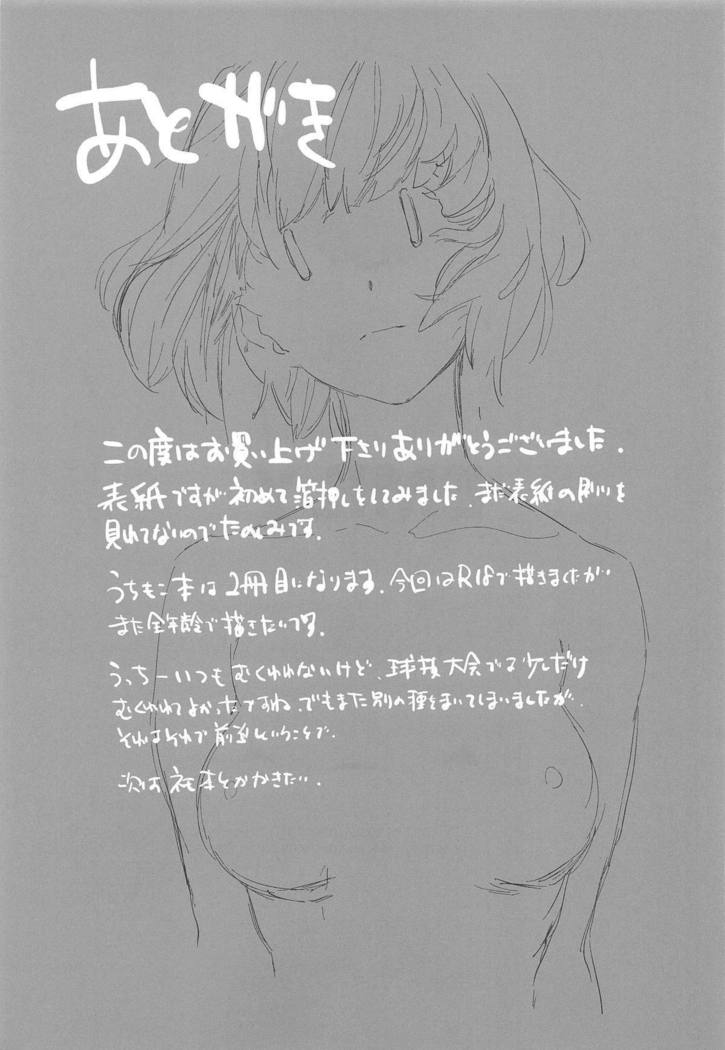 あとがき
この度はお買い上げ下さりありがとうございました.
表紙ですが初めて箔押しをしてみました.まだ表紙の刷りを
見れてないのでたのしみです.
うちもこ本は2冊目になります.今回はR18で描きましたが
また全年齢で描きたいです.
うっちーいつもむくわれないけど、球技大会で少しだけ
むくわれてよかったですね.でもまた別の種をまいてしまいましたが.
それはそれで前進ということで.
次はネモ本とかかきたい.